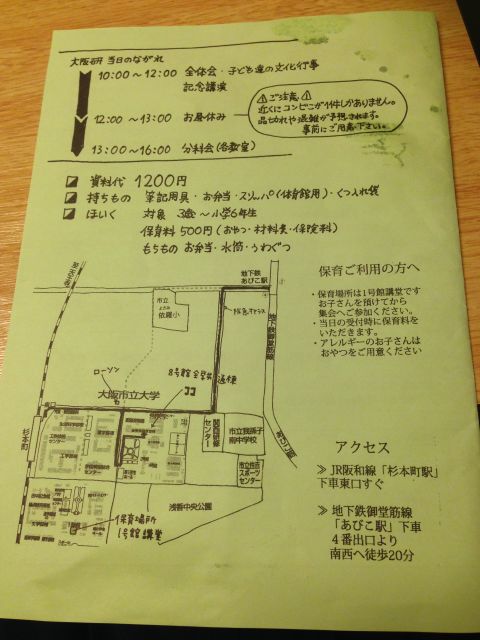 大阪研 当日のながれ
10:00〜12:00 全体会・子ども達の文化行事
記念講演
12:00〜13:00 お昼休み
⚠ご注意⚠
近くにコンビニが1件しかありません。
品切れや混雑が予想されます。
事前にご用意下さい。
13:00〜16:00 分科会(各教室)
資料代 1200円
持ちもの 筆記用具・お弁当・スリッパ(体育館用)・くつ入れ袋
ほいく 対象 3歳〜小学6年生
保育料 500円(おやつ・材料費・保険料)
もちもの お弁当・水筒・うわぐつ
保育ご利用の方へ
・保育場所は1号館講堂です
お子さんを預けてから
集会へご参加ください。
・当日の受付時に保育料を
いただきます。
・アレルギーのお子さんは
おやつをご用意ください
地下鉄
あびこ駅
市立
依羅小
地下鉄御堂筋線
ローソン
大阪市立大学
8号館
ココ
杉本町
関西研修
センター
市立我孫子
南中学校
市立住吉
スポーツ
センター
浅香中央公園
保育場所
1号館講堂
アクセス
≫ JR阪和線「杉本町駅」
下車東口すぐ
≫ 地下鉄御堂筋線
「あびこ駅」下車
4番出口より
南西へ徒歩20分